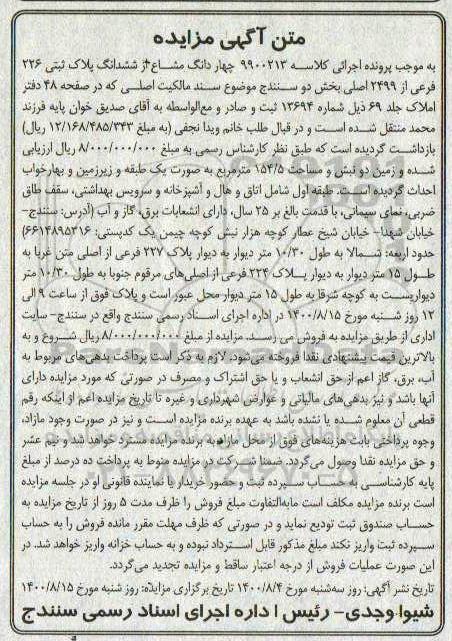 متن آگهی مزایده
به موجب پرونده اجرائی کلاسه ۹۹۰۰۲۱۳ چهار دانگ مشاع از ششدانگ پلاک ثبتی ۲۲۶
فرعی از ۲۴۹۹ اصلی بخش دو سنندج موضوع سند مالکیت اصلی که در صفحه ۴۸ دفتر
املاک جلد ۶۹ ذیل شماره ۱۳۶۹۴ ثبت و صادر و مع‌الواسطه به آقای صدیق خوان پایه فرزند
محمد منتقل شده است و در قبال طلب خانم ویدا نجفی (به مبلغ ۱۲/۱۶۸/۴۸۵/۳۴۳ ریال)
بازداشت گردیده است که طبق نظر کارشناس رسمی به مبلغ ۸/۰۰۰/۰۰۰/۰۰۰ ریال ارزیابی
شده و زمین دو نبش و مساحت ۱۵۴/۵ مترمربع به صورت یک طبقه و زیرزمین و بهارخواب
احداث گردیده است. طبقه اول شامل اتاق و هال و آشپزخانه و سرویس بهداشتی، سقف طاق
ضربی، نمای سیمانی، با قدمت بالغ بر ۲۵ سال، دارای انشعابات برق، گاز و آب (آدرس: سنندج–
خیابان شهدا– خیابان شیخ عطار کوچه هزار نبش کوچه چیمن یک کدپستی: ۶۶۱۴۸۹۵۳۱۶)
حدود اربعه: شمالا به طول ۱۰/۳۰ متر دیوار به دیوار پلاک ۲۲۷ فرعی از اصلی متن غربا به
طول ۱۵ متر دیوار به دیوار پلاک ۲۲۴ فرعی از اصلی‌های مرقوم جنوبا به طول ۱۰/۳۰ متر
دیواریست به کوچه شرقا به طول ۱۵ متر دیوار محل عبور است و پلاک فوق از ساعت ۹ الی
۱۲ روز شنبه مورخ ۱۴۰۰/۸/۱۵ در اداره اجرای اسناد رسمی سنندج واقع در سنندج– سایت
اداری از طریق مزایده به فروش می رسد. مزایده از مبلغ ۸/۰۰۰/۰۰۰/۰۰۰ ریال شروع و به
بالاترین قیمت پیشنهادی نقدا فروخته می‌شود. لازم به ذکر است پرداخت بدهی‌های مربوط به
آب، برق، گاز اعم از حق انشعاب و یا حق اشتراک و مصرف در صورتی که مورد مزایده دارای
آنها باشد و نیز بدهی‌های مالیاتی و عوارض شهرداری و غیره تا تاریخ مزایده اعم از اینکه رقم
قطعی آن معلوم شده یا نشده باشد به عهده برنده مزایده است و نیز در صورت وجود مازاد،
وجوه پرداختی بابت هزینه‌های فوق از محل مازاد به برنده مزایده مسترد خواهد شد و نیم عشر
و حق مزایده نقدا وصول می‌گردد. ضمنا شرکت در مزایده منوط به پرداخت ده درصد از مبلغ
پایه کارشناسی به حساب سپرده ثبت و حضور خریدار یا نماینده قانونی او در جلسه مزایده
است برنده مزایده مکلف است مابه‌التفاوت مبلغ فروش را ظرف مدت ۵ روز از تاریخ مزایده به
حساب صندوق ثبت تودیع نماید و در صورتی که ظرف مهلت مقرر مانده فروش را به حساب
سپرده ثبت واریز نکند مبلغ مذکور قابل استرداد نبوده و به حساب خزانه واریز خواهد شد. در
این صورت عملیات فروش از درجه اعتبار ساقط و مزایده تجدید می‌گردد.
تاریخ نشر آگهی: روز سه‌شنبه مورخ ۱۴۰۰/۸/۴ تاریخ برگزاری مزایده: روز شنبه مورخ ۱۴۰۰/۸/۱۵
شیوا وجدی– رئیس اداره اجرای اسناد رسمی سنندج